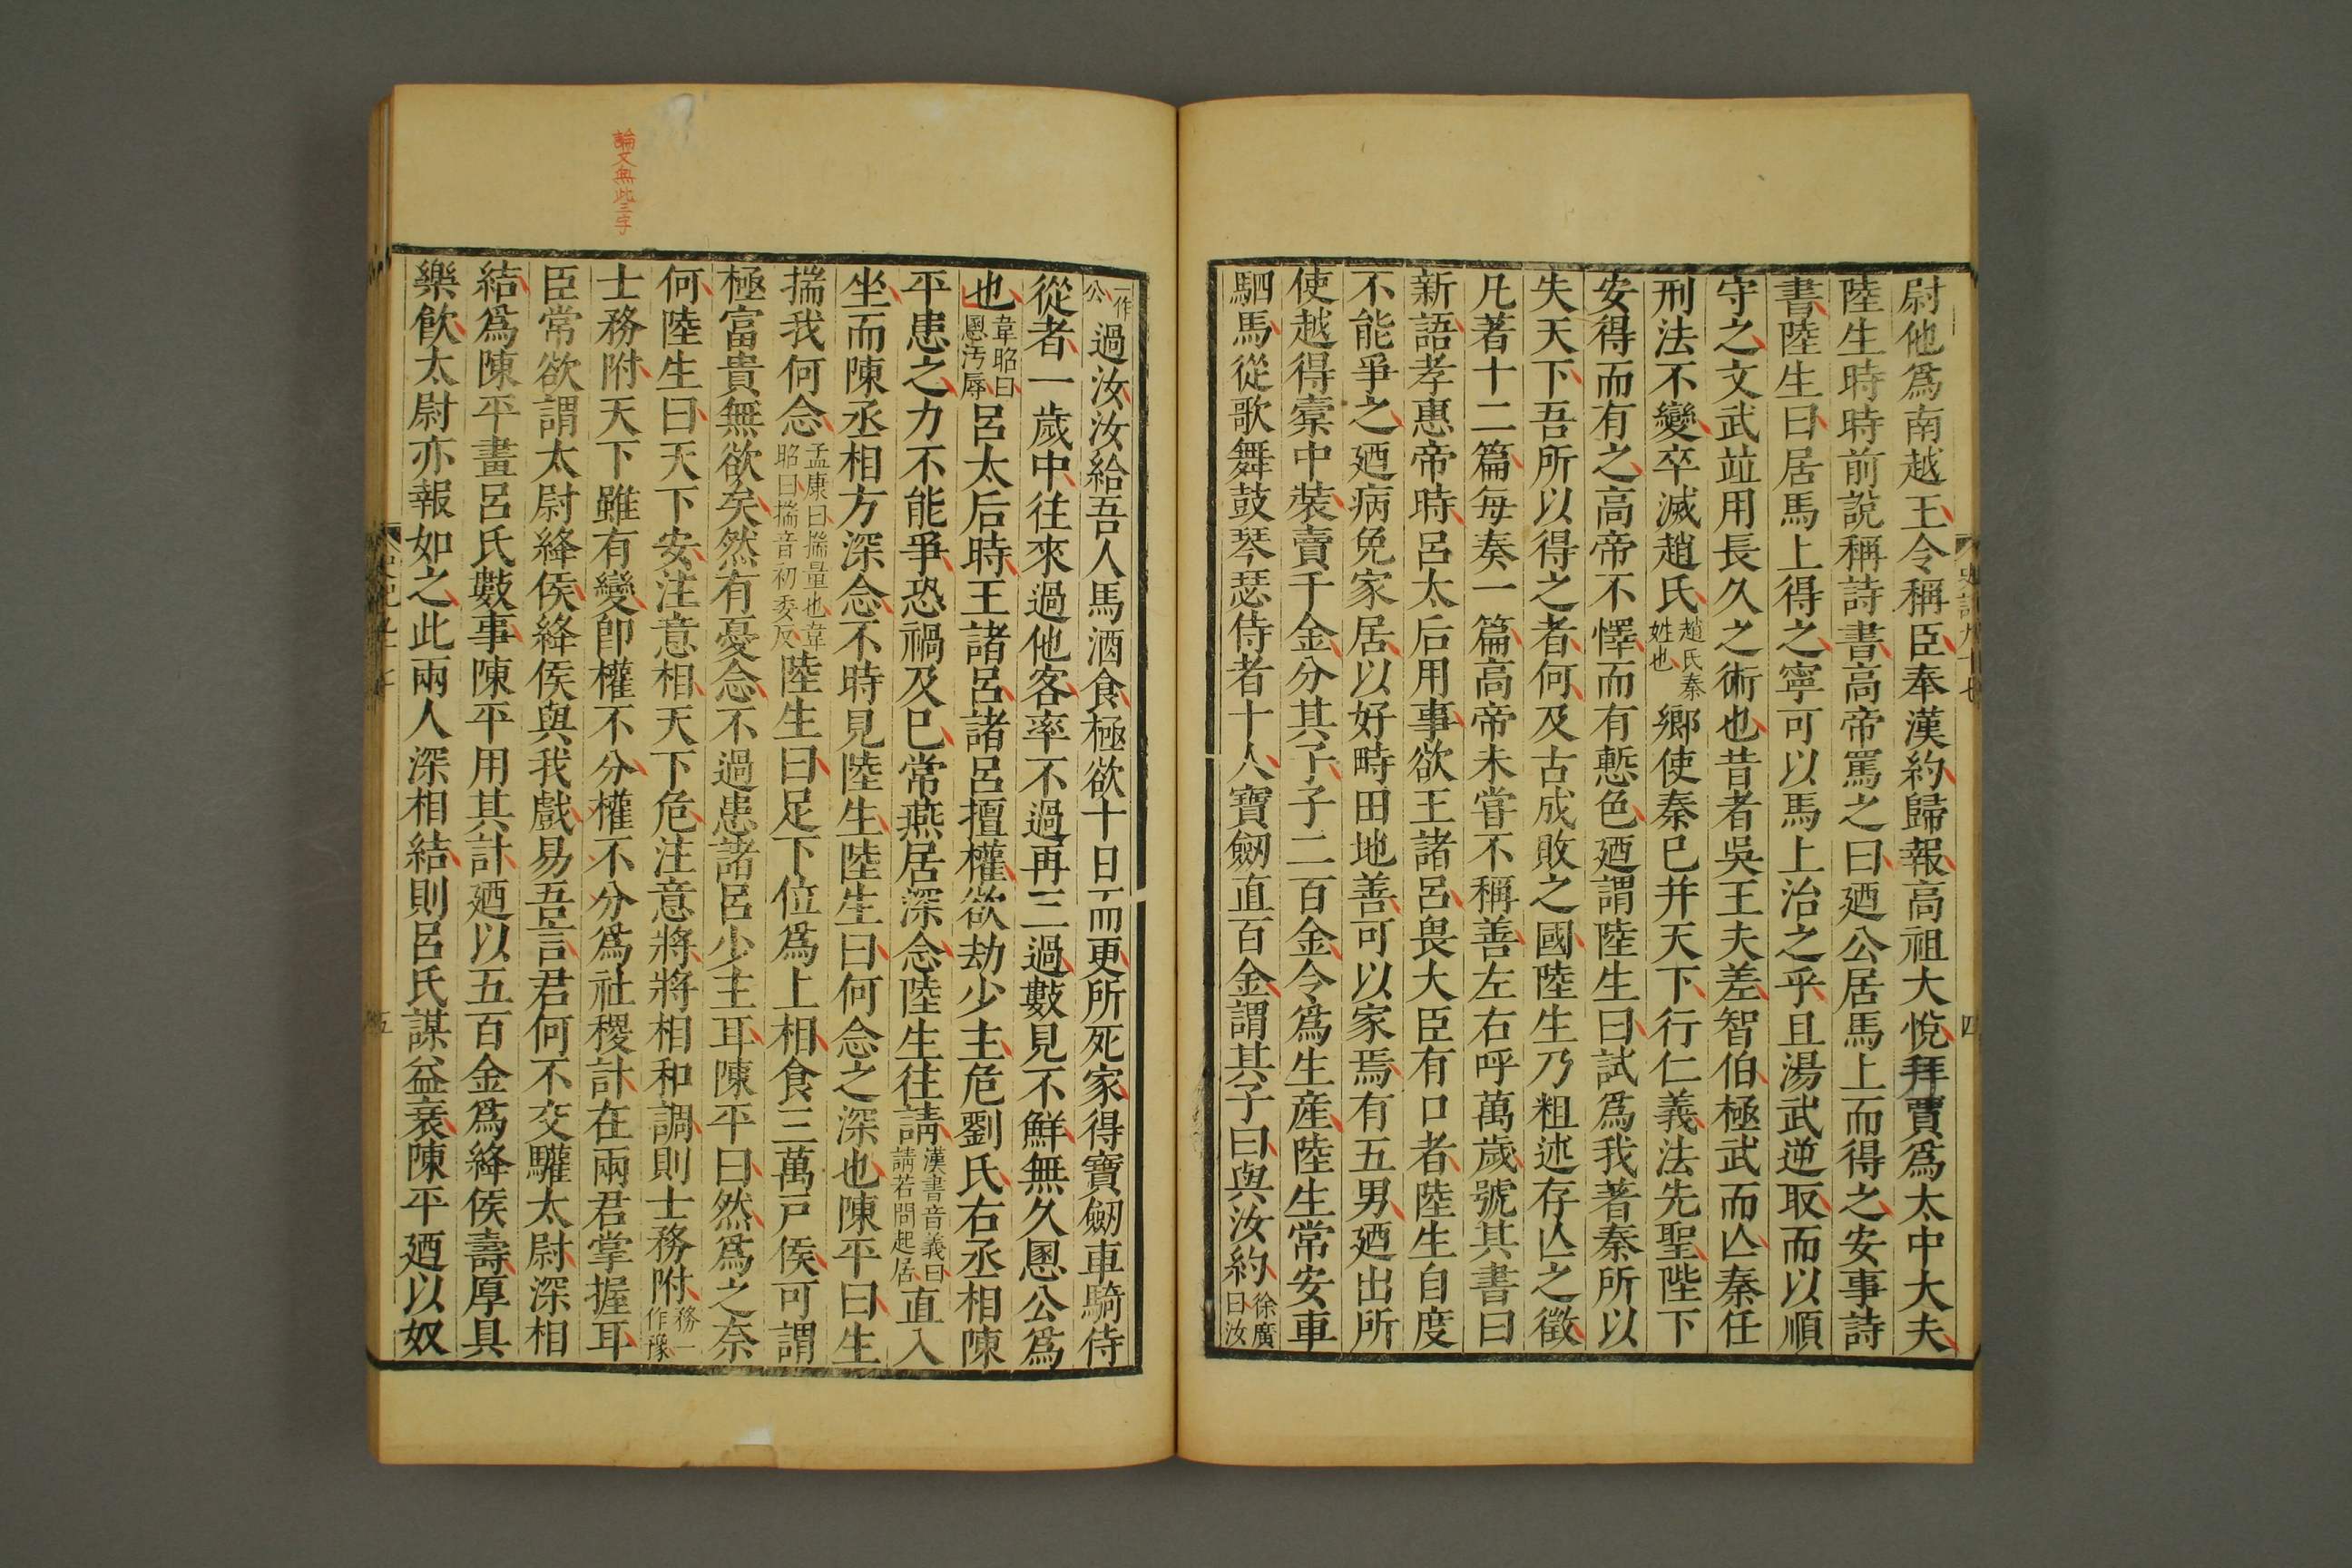 尉他為南越王令稱臣奉漢約歸報高祖大悅拜賈為太中大夫
陸生時時前說稱詩書高帝罵之曰廼公居馬上而得之安事詩
書陸生曰居馬上得之寧可以馬上治之乎且湯武逆取而以順
守之文武竝用長久之術也昔者吳王夫差智伯極武而亾秦任
刑法不變卒滅趙氏趙氏秦姓也鄉使秦已并天下行仁義法先聖陛下
安得而有之高帝不懌而有慙色廼謂陸生曰試為我著秦所以
失天下吾所以得之者何及古成敗之國陸生乃粗述存亾之徵
凡著十二篇每奏一篇高帝未甞不稱善左右呼萬歲號其書曰
新語孝惠帝時呂太后用事欲王諸呂畏大臣有口者陸生自度
不能爭之廼病免家居以好畤田地善可以家焉有五男廼出所
使越得橐中裝賣千金分其子子二百金令為生產陸生常安車
駟馬從歌舞鼓琴瑟侍者十人寶劒直百金謂其子曰與汝約徐廣曰汝
史記九十七
四
一作公過汝汝給吾人馬酒食極欲十日而更所死家得寶劒車騎侍
從者一歲中往來過他客率不過再三過數見不鮮無久慁公為
也韋昭曰慁汚辱呂太后時王諸呂諸呂擅權欲劫少主危劉氏右丞相陳
平患之力不能爭恐禍及已常燕居深念陸生往請漢書音義曰請若問起居直入
坐而陳丞相方深念不時見陸生陸生曰何念之深也陳平曰生
揣我何念孟康曰揣量也韋昭曰揣音初委反陸生曰足下位為上相食三萬戶侯可謂
極富貴無欲矣然有憂念不過患諸呂少主耳陳平曰然為之奈
何陸生曰天下安注意相天下危注意將將相和調則士務附務一作豫
士務附天下雖有變即權不分權不分為社稷計在兩君掌握耳
臣常欲謂太尉絳侯絳侯與我戲易吾言君何不交驩太尉深相
結為陳平畫呂氏數事陳平用其計廼以五百金為絳侯壽厚具
樂飲太尉亦報如之此兩人深相結則呂氏謀益衰陳平廼以奴
論文無此三字
五